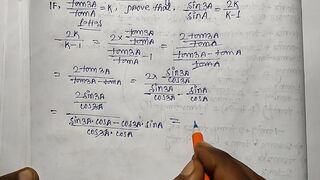 IF, tan3A/tanA = K, prove that sin3A/sinA = 2K/K-1
L.H.S
2K/K-1 = 2× tan3A/tanA / tan3A/tanA - 1 = 2tan3A/tanA / tan3A - tanA/tanA
= 2tan3A / tan3A - tanA = 2× sin3A/cos3A / sin3A/cos3A - sinA/cosA
= 2sin3A/cos3A / sin3A·cosA - cos3A·sinA/cos3A·cosA =